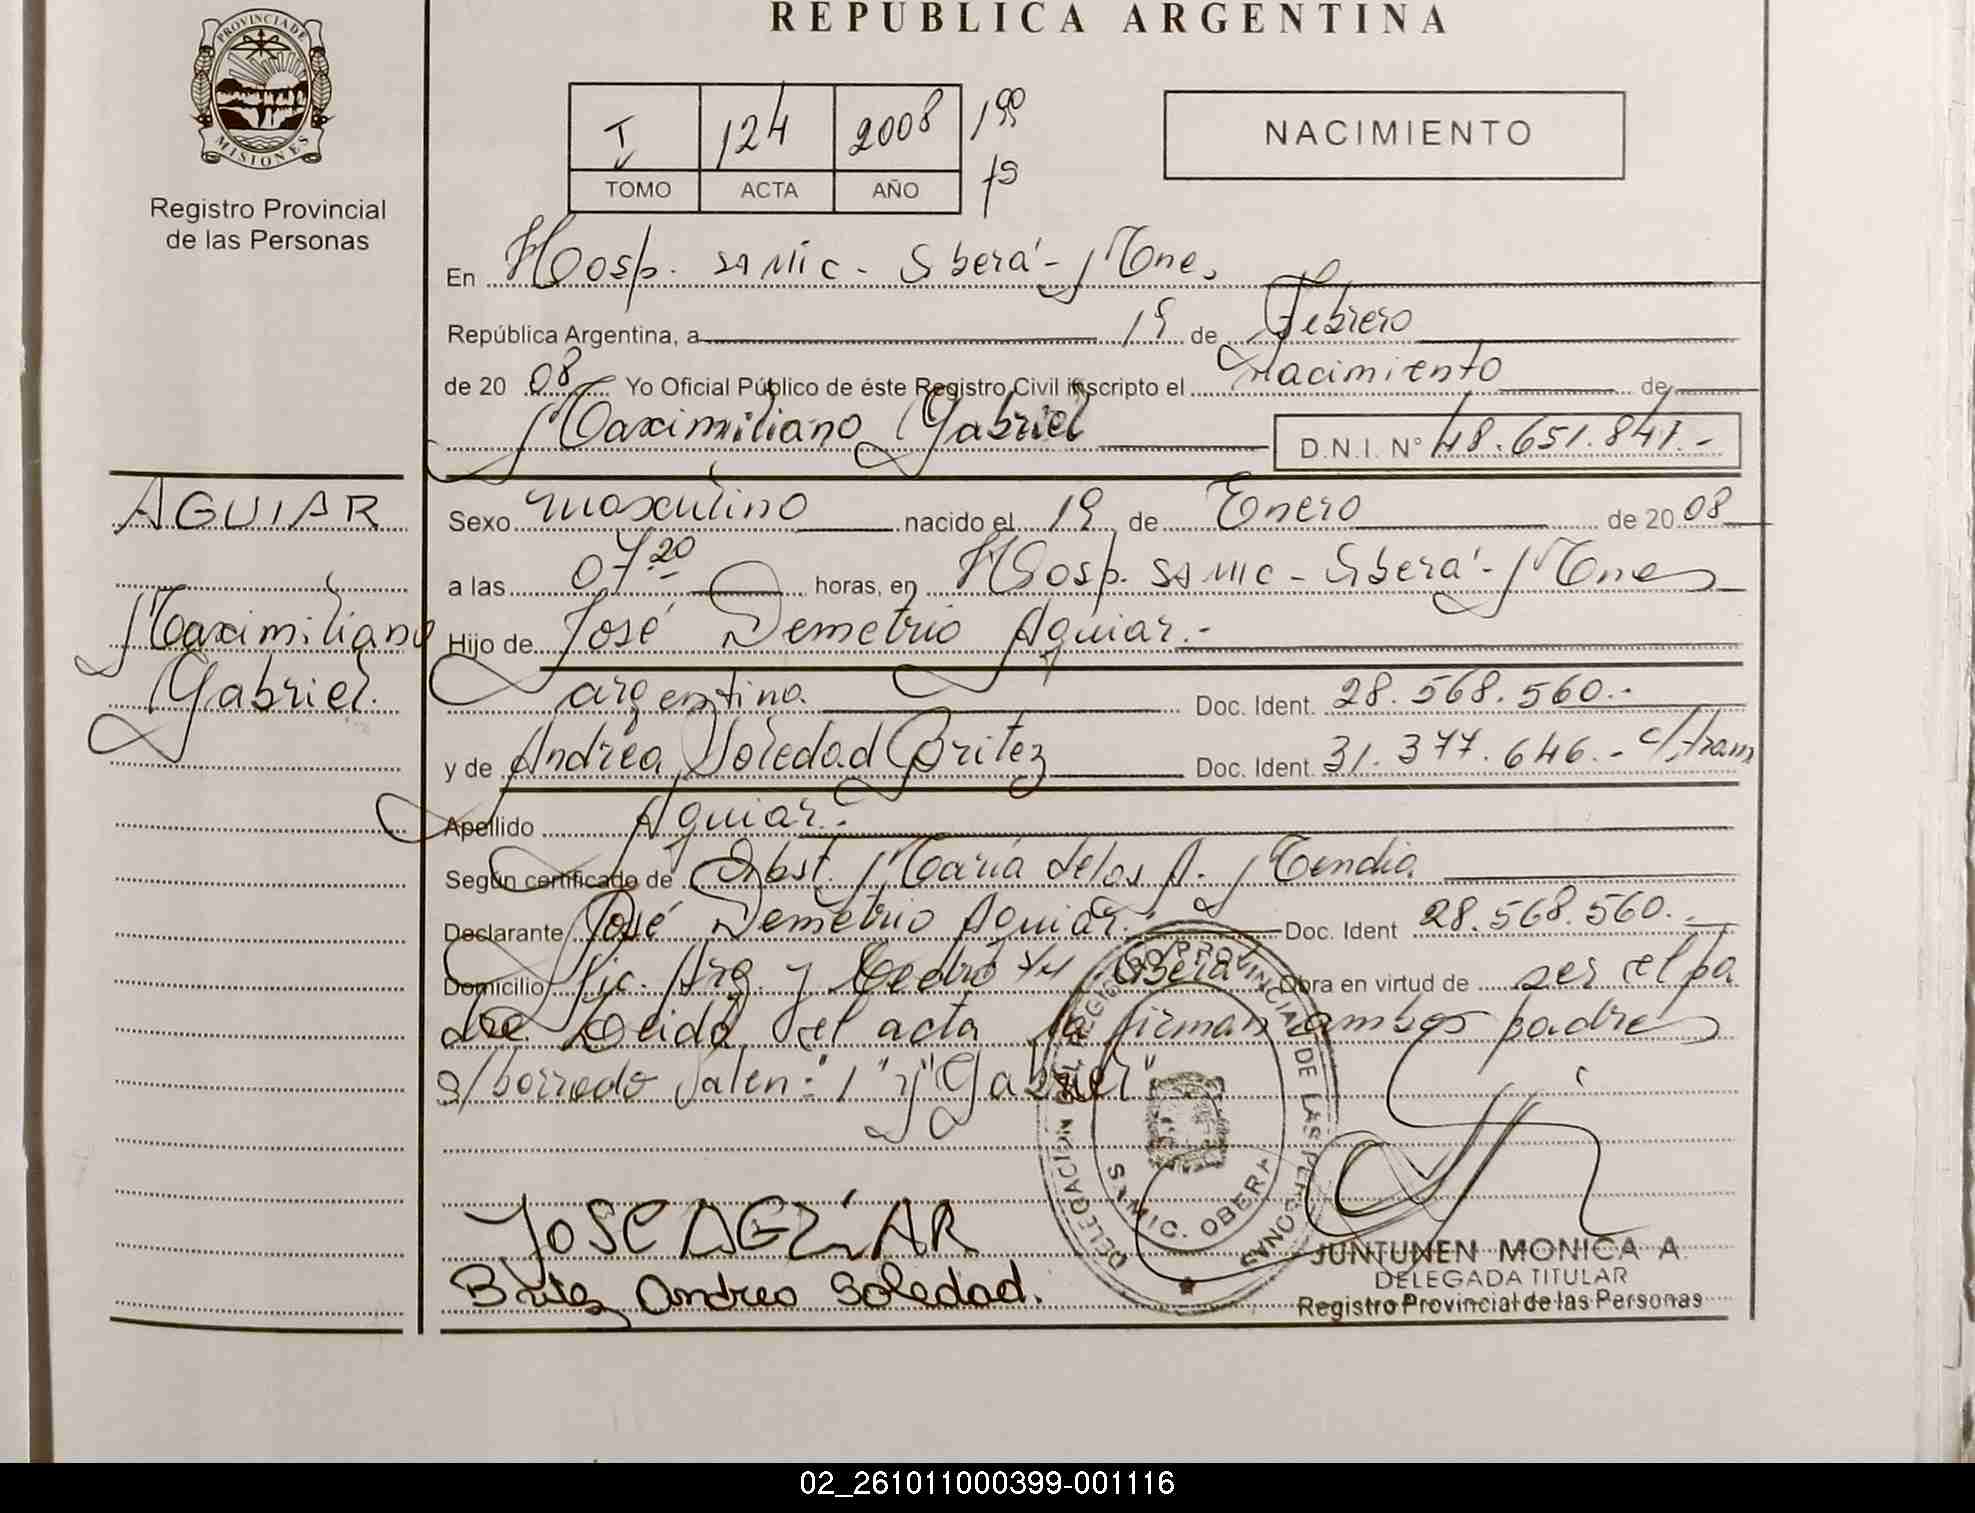 REPUBLICA ARGENTINA
PROVINCIA DE MISIONES
Registro Provincial
de las Personas
I 124 2008 1
TOMO ACTA AÑO
NACIMIENTO
En Hosp. SAMIC - Oberá - Mnes
República Argentina, a 19 de Febrero
de 2008 Yo Oficial Público de éste Registro Civil inscripto el Nacimiento de
Maximiliano Gabriel D.N.I. N° 48.651.841.-
AGUIAR
Maximiliano
Gabriel.
Sexo masculino nacido el 19 de Enero de 2008
a las 07.20 horas, en Hosp. SAMIC - Oberá - Mnes
Hijo de José Demetrio Aguiar.-
argentina Doc. Ident. 28.568.560.-
y de Andrea Soledad Britez Doc. Ident. 31.377.646.- c/tram
Apellido Aguiar.-
Según certificado de Obst. María delos A. Mendia
Declarante José Demetrio Aguiar.- Doc. Ident 28.568.560.-
Domicilio Pic. Arg. y Cedro s/n Oberá Obra en virtud de ser el pa
dre Leida el acta la firman ambos padres
s/borrado Valen: "1" y "Gabriel"
JOSE AGUIAR
Britez Andrea Soledad.
DELEGACION REGISTRO PROVINCIAL DE LAS PERSONAS
OBERA
JUNTUNEN MONICA A.
DELEGADA TITULAR
Registro Provincial de las Personas
02_261011000399-001116